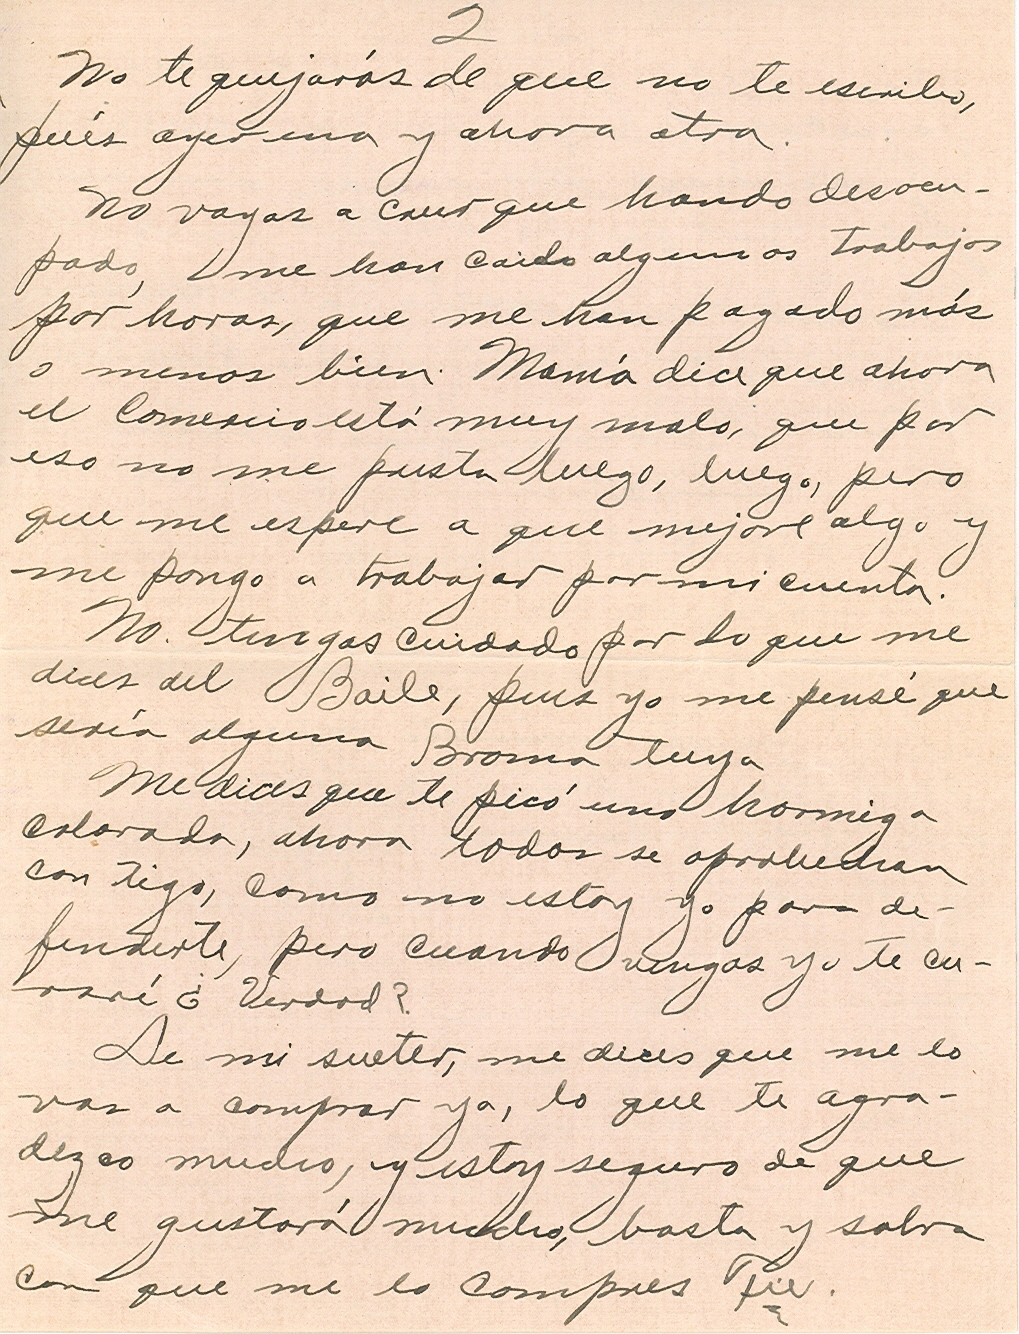 2
No te quejarás de que no te escribo,
pués ayer una y ahora otra.
No vayas a creer que hando desocu-
pado, me han caido algunos trabajos
por horas, que me han pagado más
o menos bien. Mamá dice que ahora
el Comercio está muy malo, que por
eso no me pusta luego, luego, pero
que me espere a que mejore algo y
me pongo a trabajar por mi cuenta.
No. tengas cuidado por lo que me
dices del Baile, pues yo me pensé que
sería alguna Broma tuya
Me dices que te picó una hormiga
colorada, ahora todos se aprobechan
con tigo, como no estoy yo para de-
fenderte, pero cuando vengas yo te cu-
raré ¿ Verdad?
De mi sueter, me dices que me lo
vas a comprar ya, lo que te agra-
dezco mucho, y estoy seguro de que
me gustará mucho, basta y sobra
con que me lo compres